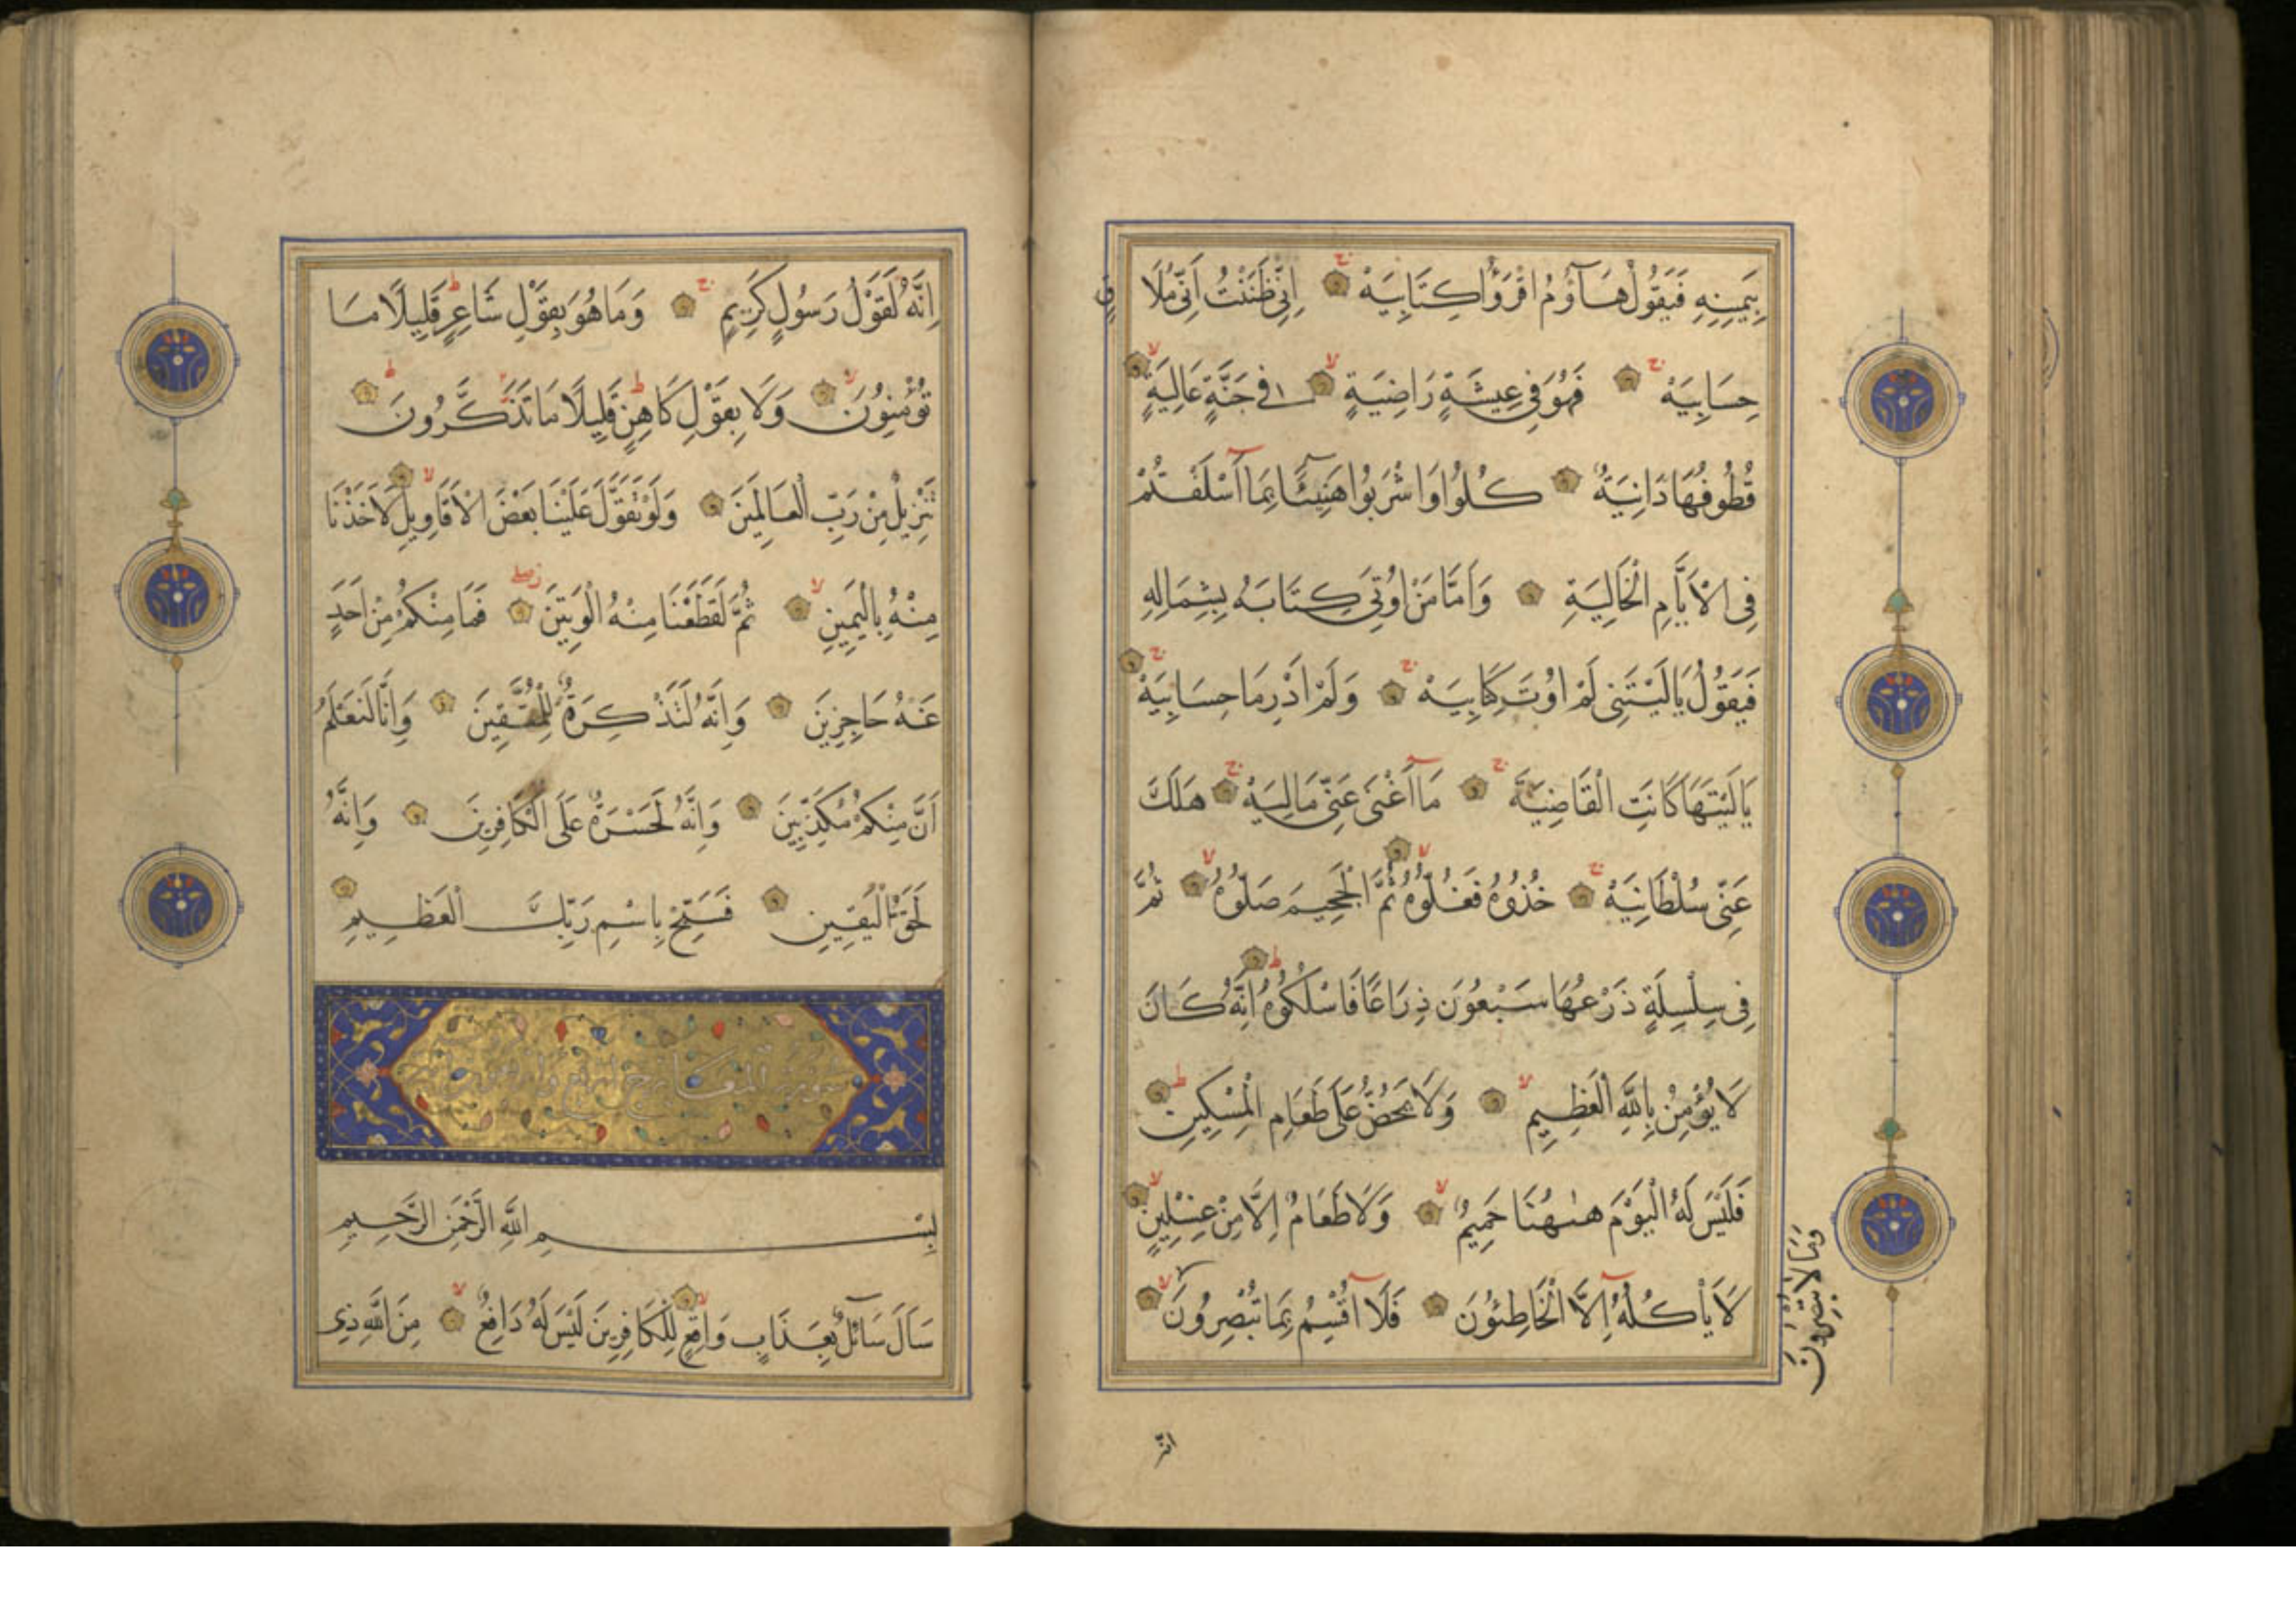 بِيَمِينِهِ فَيَقُولُ هَآؤُمُ اقْرَؤُا كِتَابِيَهْ اِنِّى ظَنَنْتُ اَنِّى مُلَا
قٍ
حِسَابِيَهْ فَهُوَ فِى عِيشَةٍ رَاضِيَةٍ فِى جَنَّةٍ عَالِيَةٍ
قُطُوفُهَا دَانِيَةٌ كُلُوا وَاشْرَبُوا هَنِيٓئًا بِمَا اَسْلَفْتُمْ
فِى الْاَيَّامِ الْخَالِيَةِ وَاَمَّا مَنْ اُوتِىَ كِتَابَهُ بِشِمَالِهِ
فَيَقُولُ يَالَيْتَنِى لَمْ اُوتَ كِتَابِيَهْ وَلَمْ اَدْرِ مَا حِسَابِيَهْ
يَالَيْتَهَا كَانَتِ الْقَاضِيَةَ مَآ اَغْنَى عَنِّى مَالِيَهْ هَلَكَ
عَنِّى سُلْطَانِيَهْ خُذُوهُ فَغُلُّوهُ ثُمَّ الْجَحِيمَ صَلُّوهُ ثُمَّ
فِى سِلْسِلَةٍ ذَرْعُهَا سَبْعُونَ ذِرَاعًا فَاسْلُكُوهُ اِنَّهُ كَانَ
لَا يُؤْمِنُ بِاللَّهِ الْعَظِيمِ وَلَا يَحُضُّ عَلَى طَعَامِ الْمِسْكِينِ
فَلَيْسَ لَهُ الْيَوْمَ هٰهُنَا حَمِيمٌ وَلَا طَعَامٌ اِلَّا مِنْ غِسْلِينٍ
لَا يَأْكُلُهُ اِلَّا الْخَاطِئُونَ فَلَآ اُقْسِمُ بِمَا تُبْصِرُونَ
وَمَا لَا تُبْصِرُونَ
اِنَّهُ
اِنَّهُ لَقَوْلُ رَسُولٍ كَرِيمٍ وَمَا هُوَ بِقَوْلِ شَاعِرٍ قَلِيلًا مَا
تُؤْمِنُونَ وَلَا بِقَوْلِ كَاهِنٍ قَلِيلًا مَا تَذَكَّرُونَ
تَنْزِيلٌ مِنْ رَبِّ الْعَالَمِينَ وَلَوْ تَقَوَّلَ عَلَيْنَا بَعْضَ الْاَقَاوِيلِ لَاَخَذْنَا
مِنْهُ بِالْيَمِينِ ثُمَّ لَقَطَعْنَا مِنْهُ الْوَتِينَ فَمَا مِنْكُمْ مِنْ اَحَدٍ
عَنْهُ حَاجِزِينَ وَاِنَّهُ لَتَذْكِرَةٌ لِلْمُتَّقِينَ وَاِنَّا لَنَعْلَمُ
اَنَّ مِنْكُمْ مُكَذِّبِينَ وَاِنَّهُ لَحَسْرَةٌ عَلَى الْكَافِرِينَ وَاِنَّهُ
لَحَقُّ الْيَقِينِ فَسَبِّحْ بِاسْمِ رَبِّكَ الْعَظِيمِ
سورة المعارج
بِسْمِ اللَّهِ الرَّحْمَنِ الرَّحِيمِ
سَاَلَ سَآئِلٌ بِعَذَابٍ وَاقِعٍ لِلْكَافِرِينَ لَيْسَ لَهُ دَافِعٌ مِنَ اللَّهِ ذِى